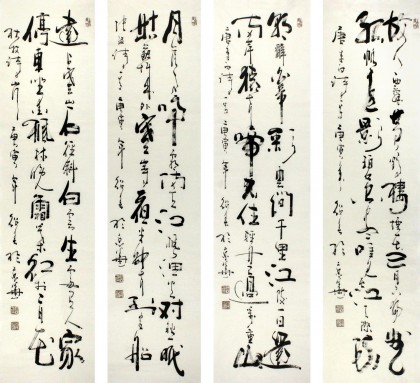 故人西辞黄鹤楼烟花三月下扬州
孤帆远影碧空尽唯见长江天际流
唐李白诗一首庚寅年
朝辞白帝彩云间千里江陵一日还
两岸猿声啼不住轻舟已过万重山
唐李白诗一首庚寅年
月落乌啼霜满天江枫渔火对愁眠
姑苏城外寒山寺夜半钟声到客船
张继诗一首庚寅年
远上寒山石径斜白云生处有人家
停车坐爱枫林晚霜叶红于二月花
杜牧诗山行庚寅年